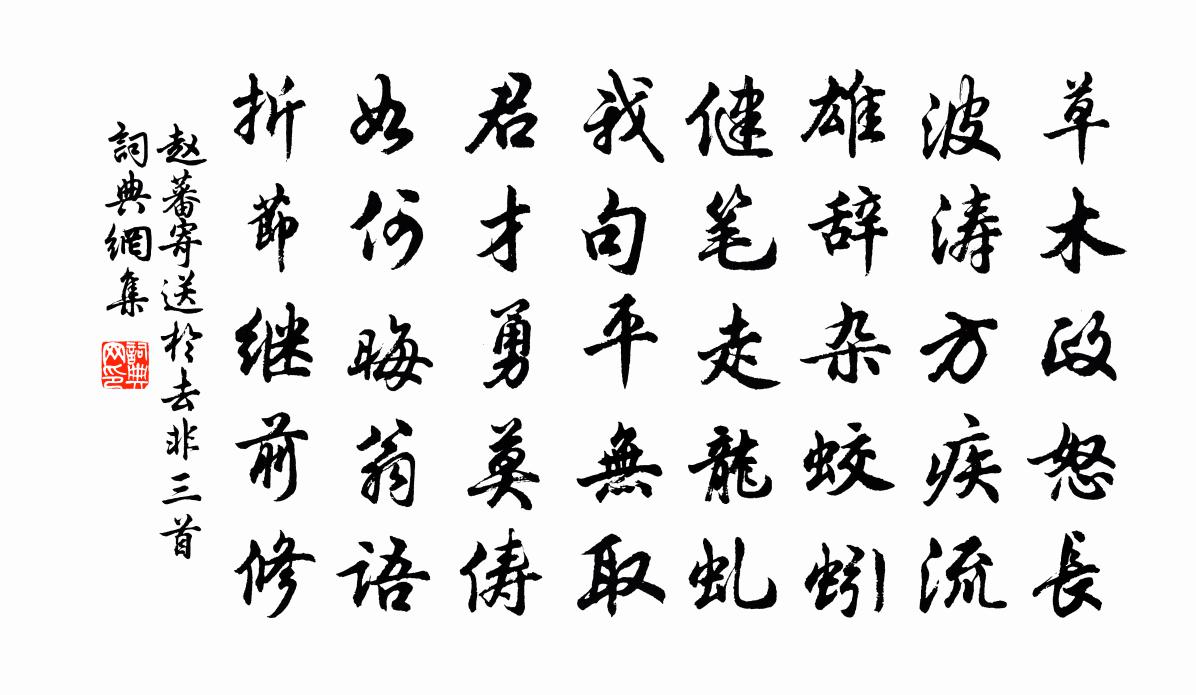 草木政怒長
波涛方疾流
雄辞杂蛟蚓
健笔走龍虬
我句平無取
君才勇莫俦
如何晦翁语
折節继前修
赵蕃寄送於去非三首
詞典網集
詞典網印